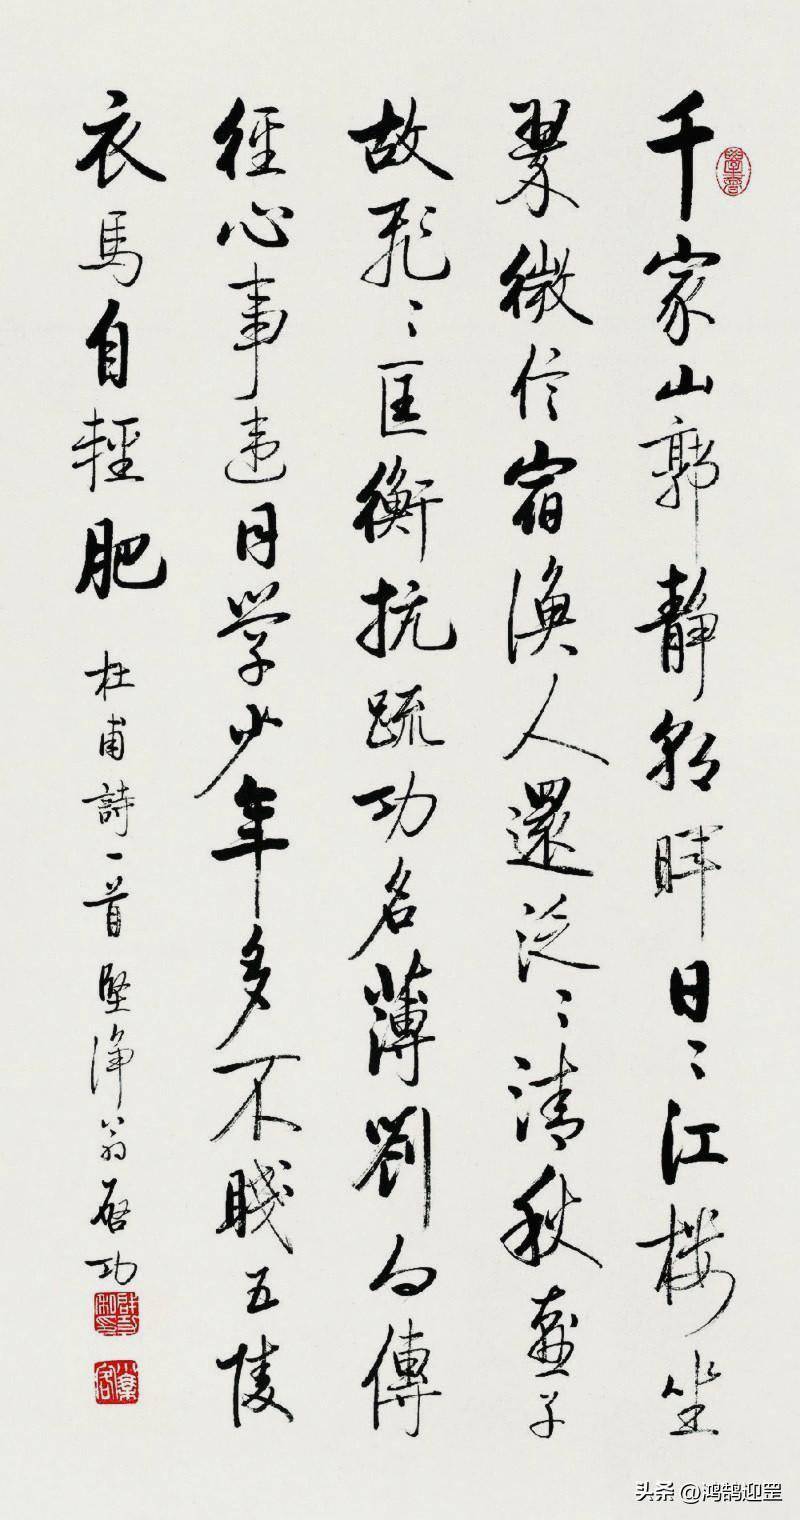 千家山郭靜朝晖日〻江楼坐
翠微信宿漁人還泛〻清秋燕子
故飛〻匡衡抗疏功名薄劉向傳
經心事違同学少年多不賤五陵
衣馬自輕肥 杜甫詩一首 堅净翁启功
头条 @鸿鹄迎罡